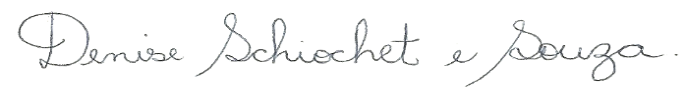 Denise Schiochet e Souza.